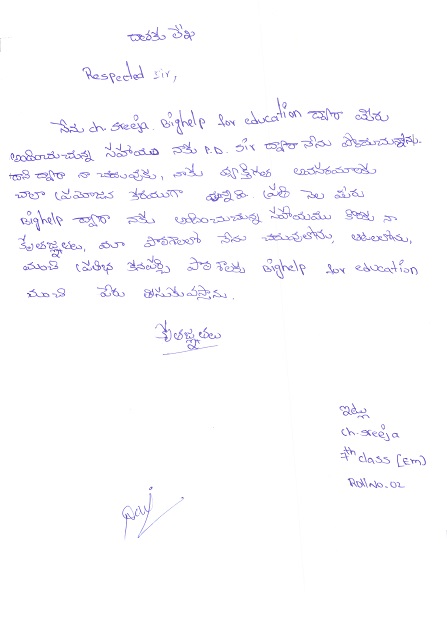 దాతకు లేఖ
Respected Sir,
నేను ch. sreeja. Bighelp for education ద్వారా మీరు
అందించుచున్న సహాయం నాకు P.D. Sir ద్వారా నేను పొందుచున్నాను.
దాని ద్వారా నా చదువుకు, నాకు వ్యక్తిగత అవసరములకు
చాలా ప్రయోజన కరముగా ఉన్నది. ప్రతి నెల మీరు
Bighelp ద్వారా నాకు అందించుచున్న సహాయము కొరకు నా
కృతజ్ఞతలు, మా పాఠశాలలో నేను చదువులోను, ఆటలలోను,
మంచి ప్రతిభ కనపర్చి పాఠశాలకు Bighelp for education
మంచి పేరు తీసుకువస్తాను.
కృతజ్ఞతలు
ఇట్లు
ch. sreeja
7th class (Em)
Roll No. 02